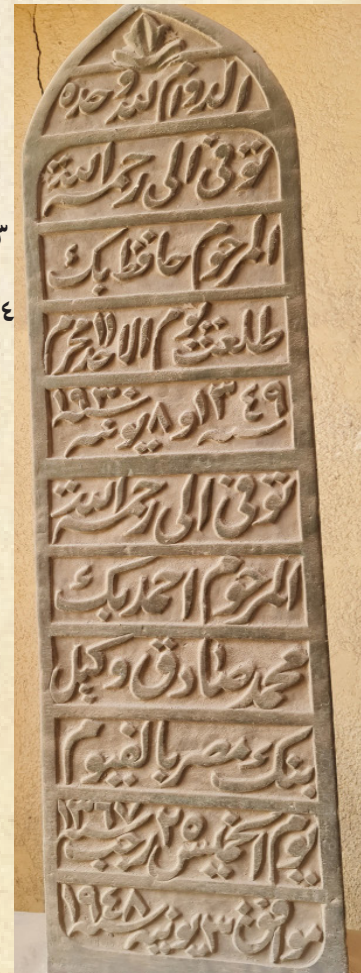 الدوام لله وحده
توفى الى رحمة الله
المرحوم حافظ بك
طلعت يوم الاحد ١١ محرم
سنة ١٣٤٩ و ٨ يونيه سنة ١٩٣٠
توفى الى رحمة الله
المرحوم احمد بك
محمد صادق وكيل
بنك مصر بالفيوم
يوم الخميس ٢٥ رجب ١٣٦٧
موافق ٣ يونيه ١٩٤٨
٣
٤